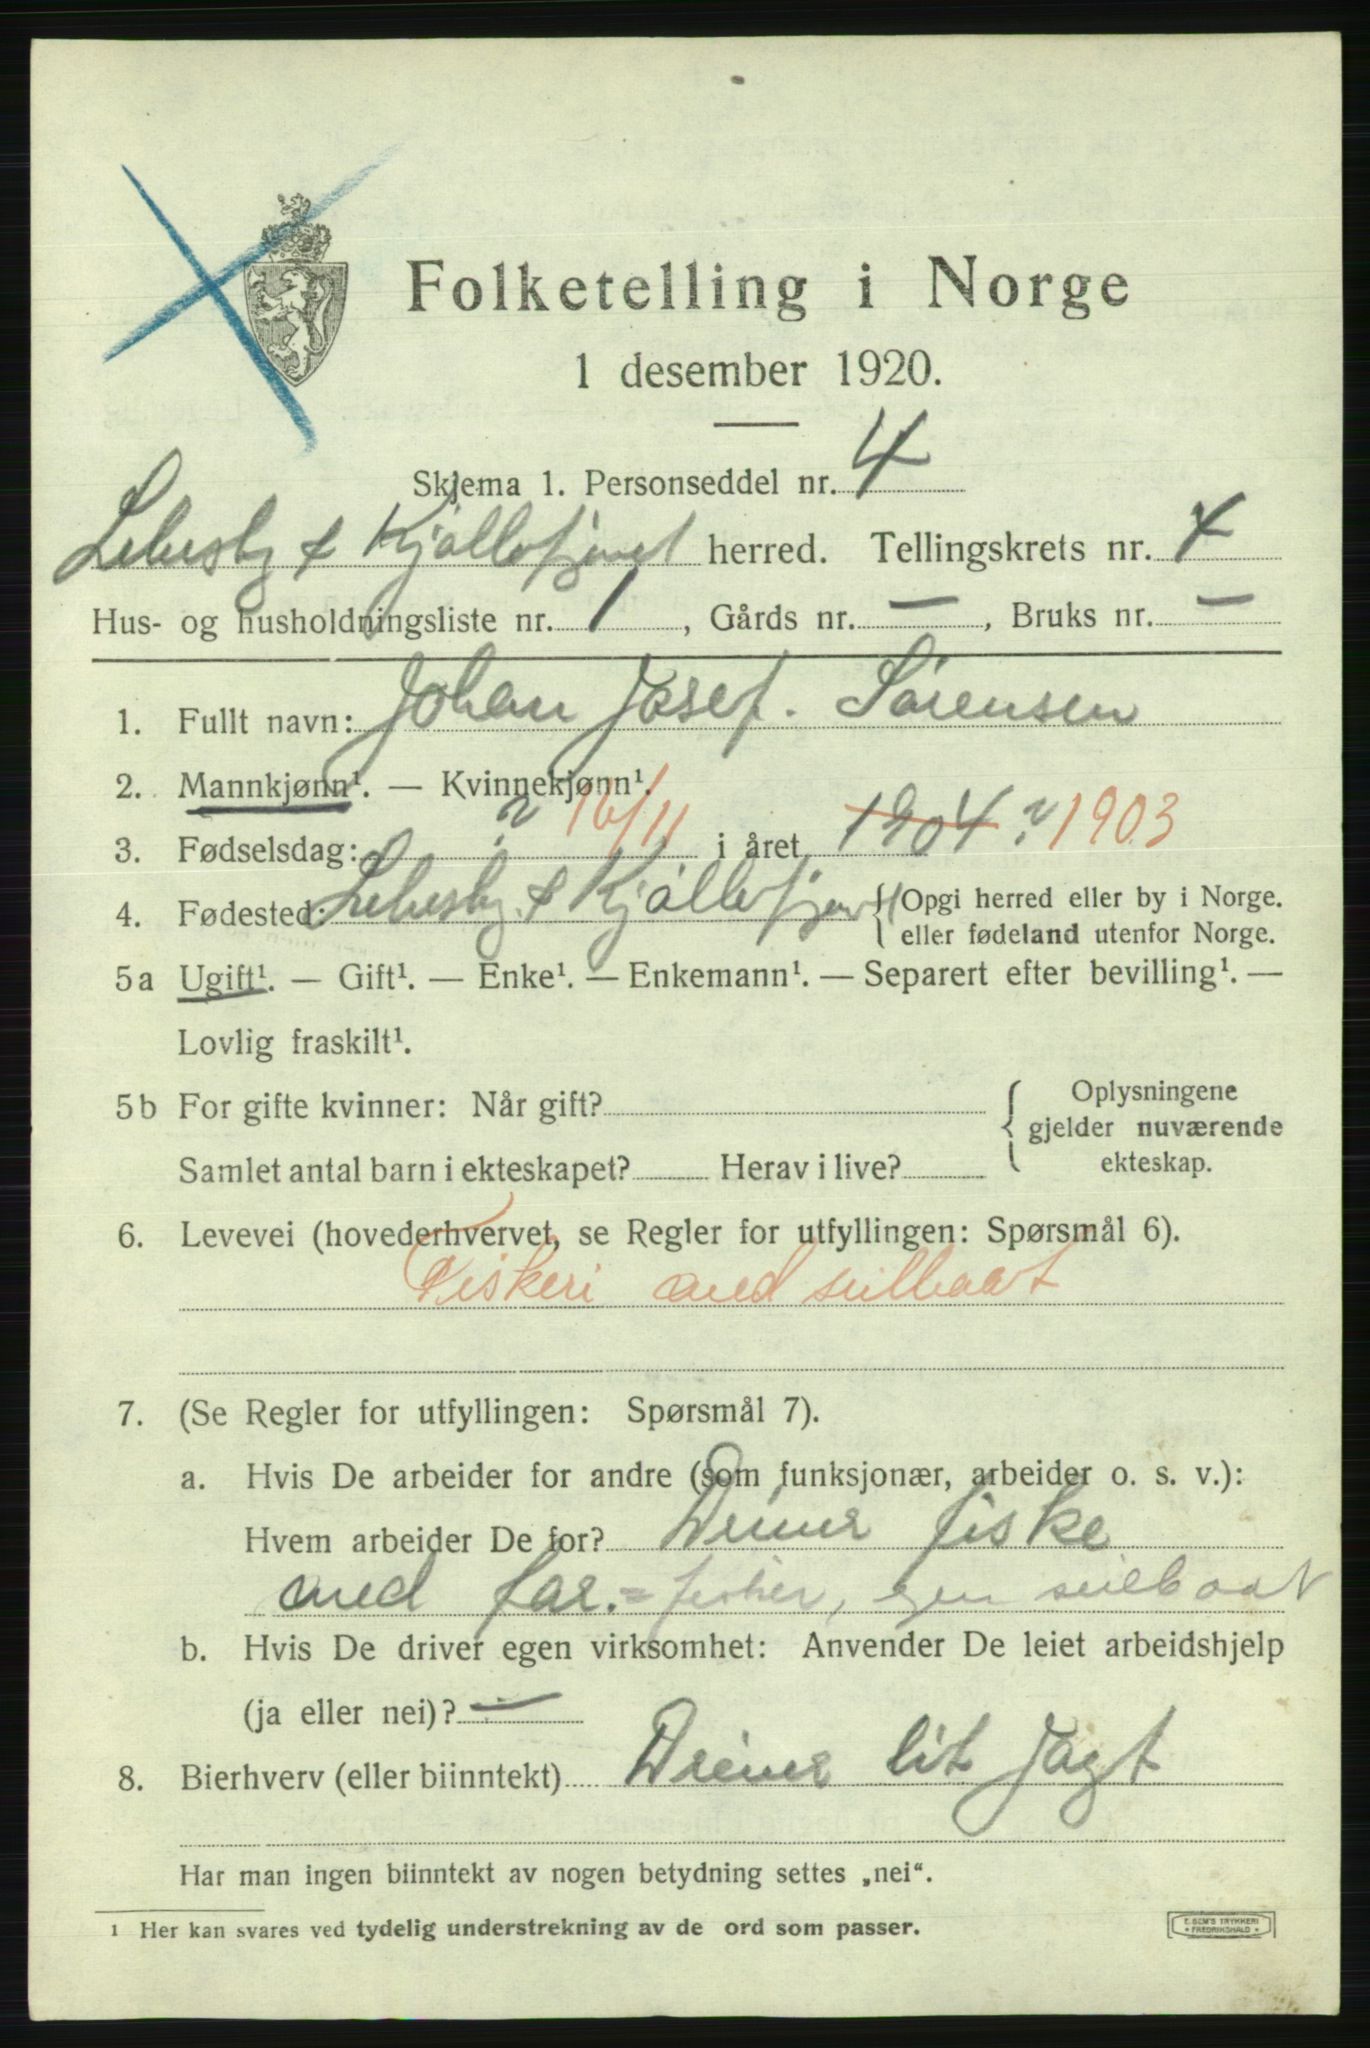 Folketelling i Norge
1 desember 1920.
Skjema 1. Personseddel nr. 4
Lebesby & Kjøllefjord herred. Tellingskrets nr. 4
Hus- og husholdningsliste nr. 1, Gårds nr. —, Bruks nr. —
1. Fullt navn: Johan Josef. Sørensen
2. Mannkjønn¹. — Kvinnekjønn¹.
3. Fødselsdag: ? 16/11 i året 1904 ? 1903
4. Fødested: Lebesby & Kjøllefjord {Opgi herred eller by i Norge.
eller fødeland utenfor Norge.
5a Ugift¹. — Gift¹. — Enke¹. — Enkemann¹. — Separert efter bevilling¹. —
Lovlig fraskilt¹.
5b For gifte kvinner: Når gift? { Oplysningene
gjelder nuværende
Samlet antal barn i ekteskapet? Herav i live? ekteskap.
6. Levevei (hovederhvervet, se Regler for utfyllingen: Spørsmål 6).
Fiskeri med seilbaat
7. (Se Regler for utfyllingen: Spørsmål 7).
a. Hvis De arbeider for andre (som funksjonær, arbeider o. s. v.):
Hvem arbeider De for? Driver fiske
med far. = fisker, egen seilbaat
b. Hvis De driver egen virksomhet: Anvender De leiet arbeidshjelp
(ja eller nei)? —
8. Bierhverv (eller biinntekt) Driver lit Jagt
Har man ingen biinntekt av nogen betydning settes „nei“.
¹ Her kan svares ved tydelig understrekning av de ord som passer.
E. SEM'S TRYKKERI
• FREDRIKSHALD •